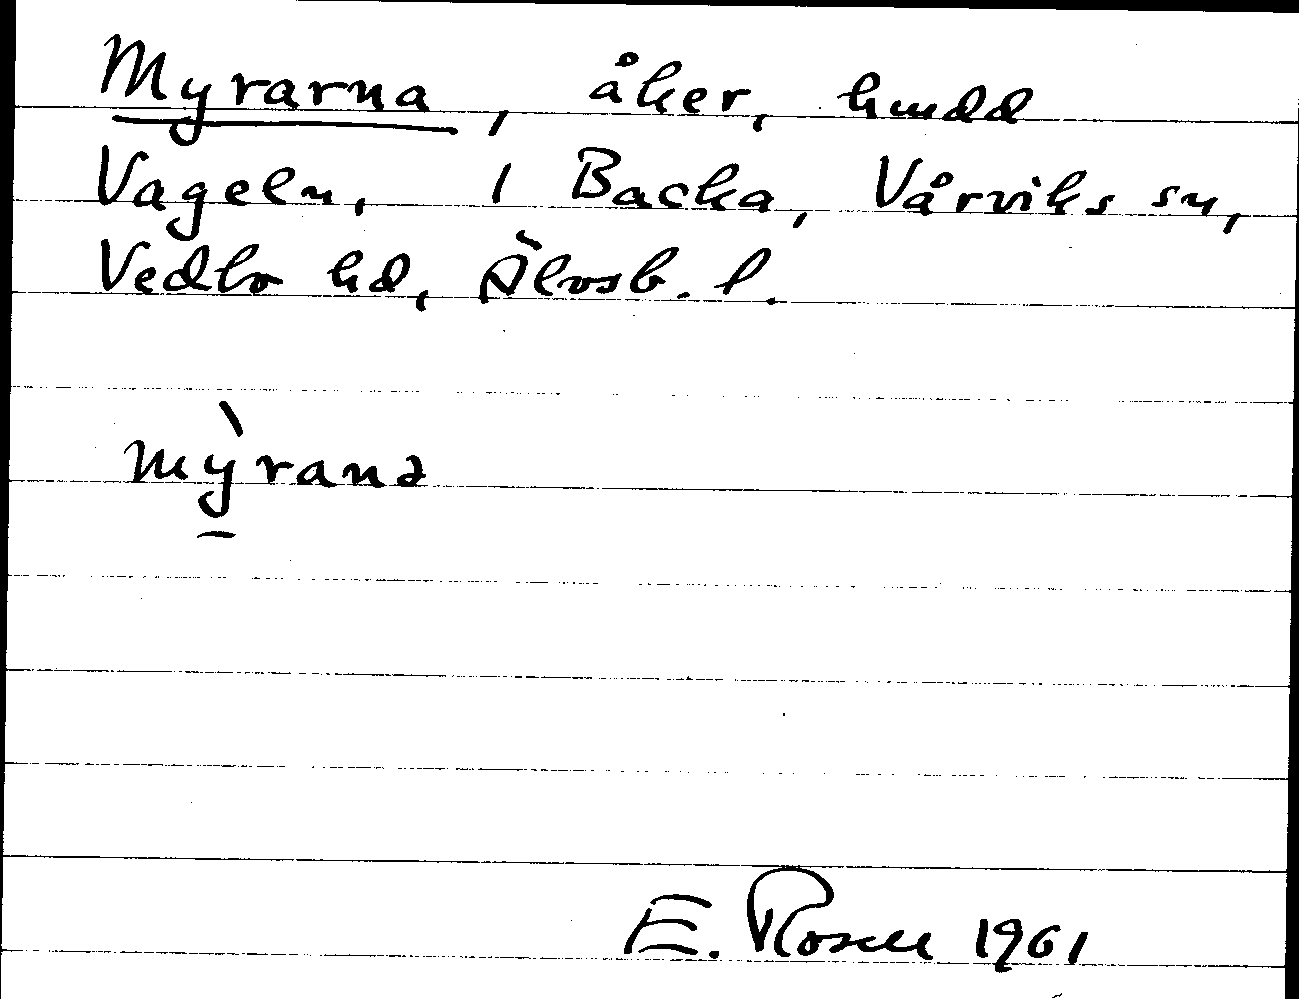 Myrarna, åker, hmdd
Vageln, 1 Backa, Vårviks sn,
Vedbo hd, Älvsb. l.
mỳranə
E. Rosell 1961